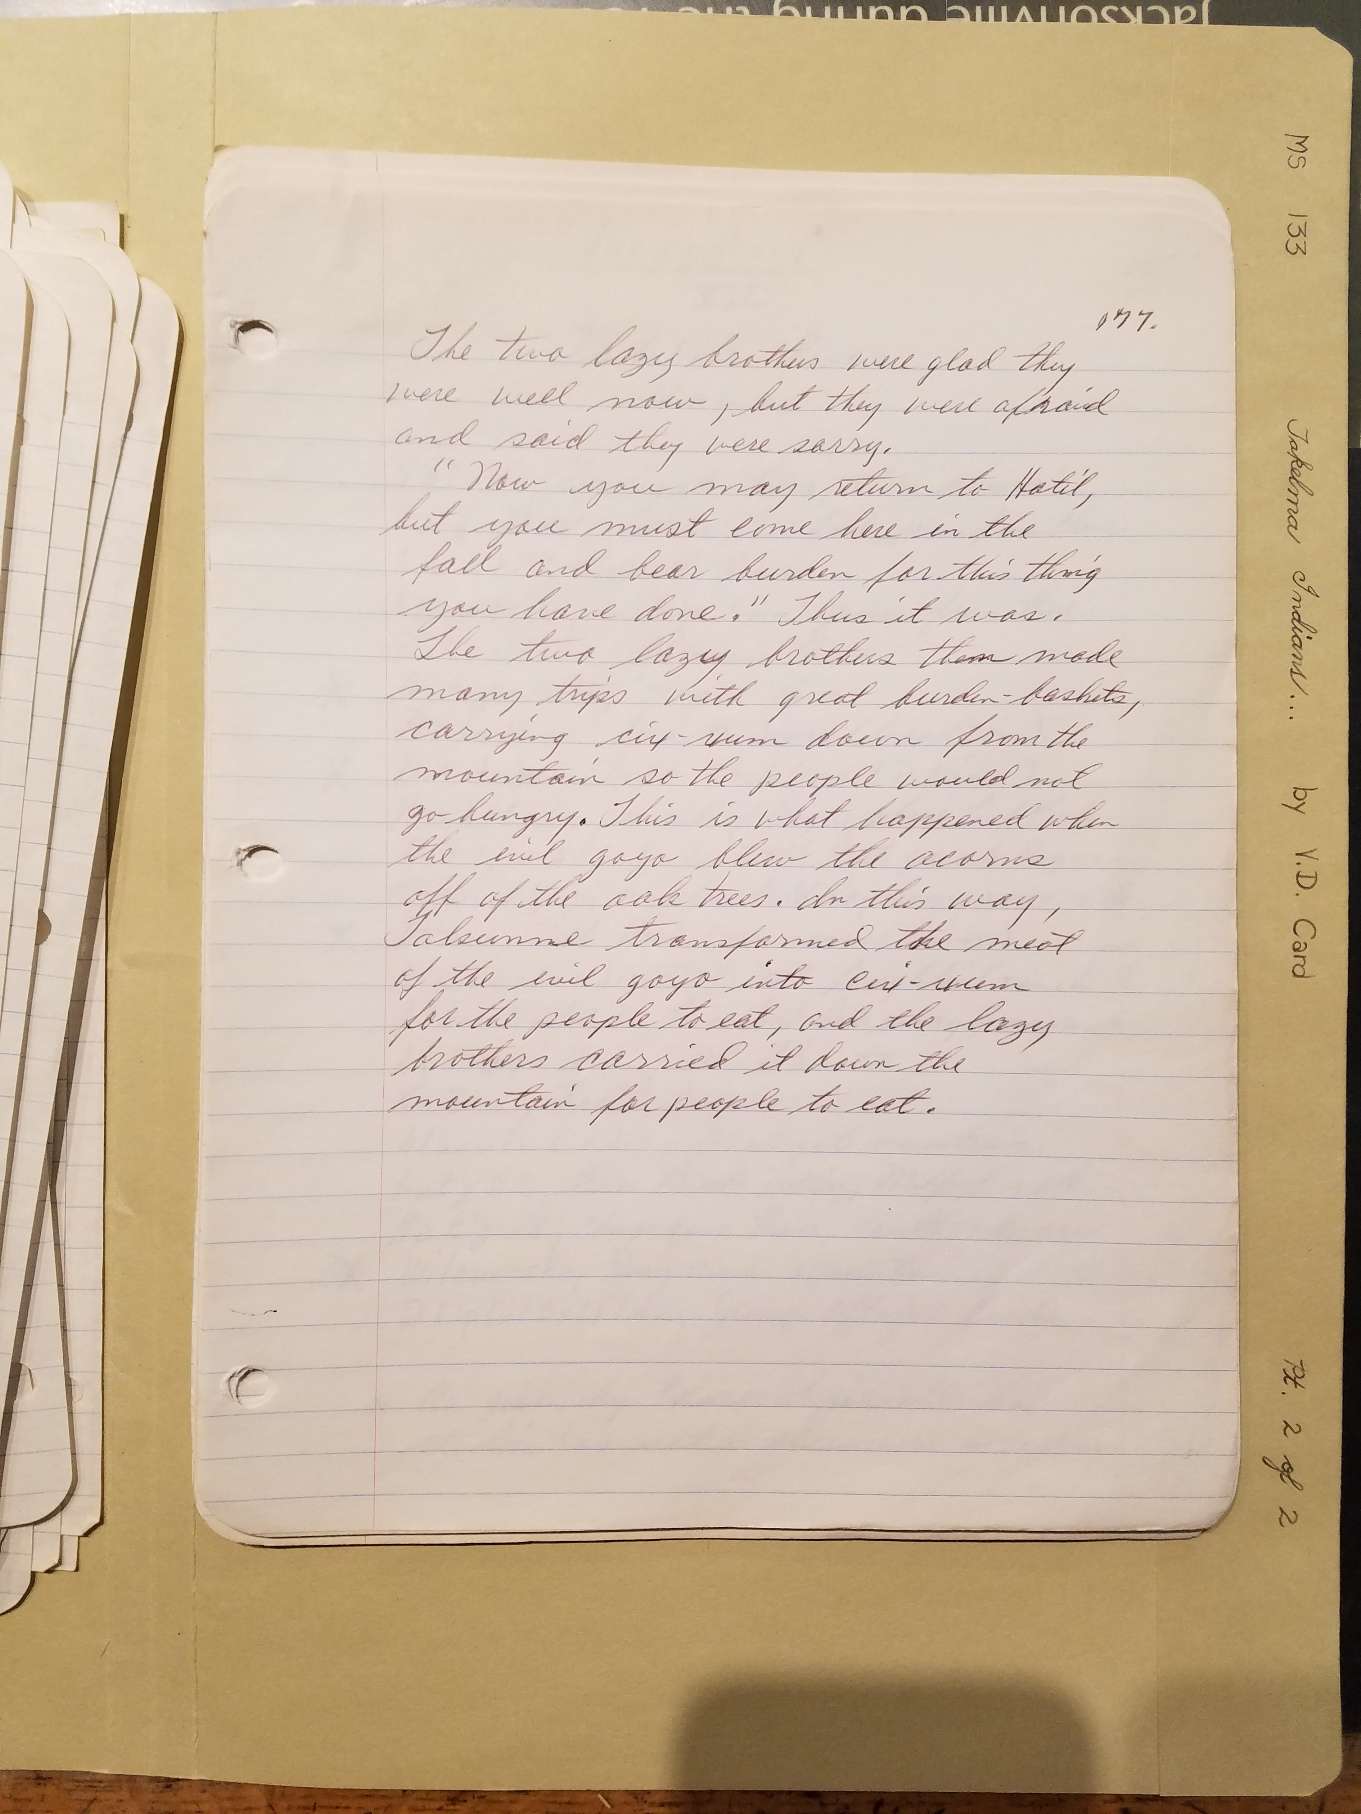 Jacksonville during the
177.
The two lazy brothers were glad they
were well now, but they were afraid
and said they were sorry.
"Now you may return to Hati'l,
but you must come here in the
fall and bear burden for this thing
you have done." Thus it was.
The two lazy brothers then made
many trips with great burden-baskets,
carrying cix-xum down from the
mountain so the people would not
go hungry. This is what happened when
the evil goyo blew the acorns
off of the oak trees. In this way,
Talsunne transformed the meat
of the evil goyo into cix-xum
for the people to eat, and the lazy
brothers carried it down the
mountain for people to eat.
MS 133 Takelma Indians... by V.D. Card Pt. 2 of 2